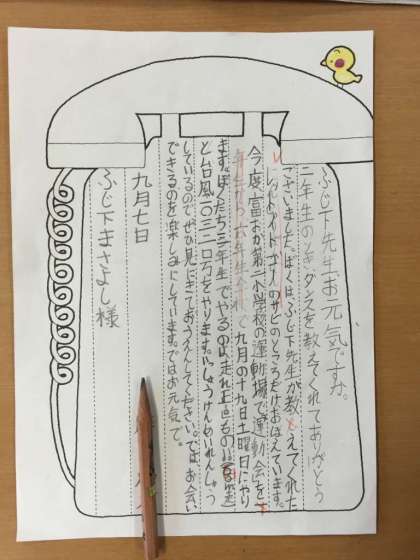 ふじ下先生お元気ですか。
二年生の時ダンスを教えてくれてありがとう
ございました。ぼくはふじ下先生が教えてくれた
のところだけおぼえています。
今度、富おか第二小学校の運動場で運動会を
九月の十九日土曜日にやり
ます。ぼくたち三年生でやるのは走れ正直もの
と台風一〇三二〇〇をやります。いっしょうけんめいれんしゅう
しているのでぜひ見にきておうえんしてください。ではお会い
できるのを楽しみにしています。ではお元気で。
九月七日
ふじ下まさよし様